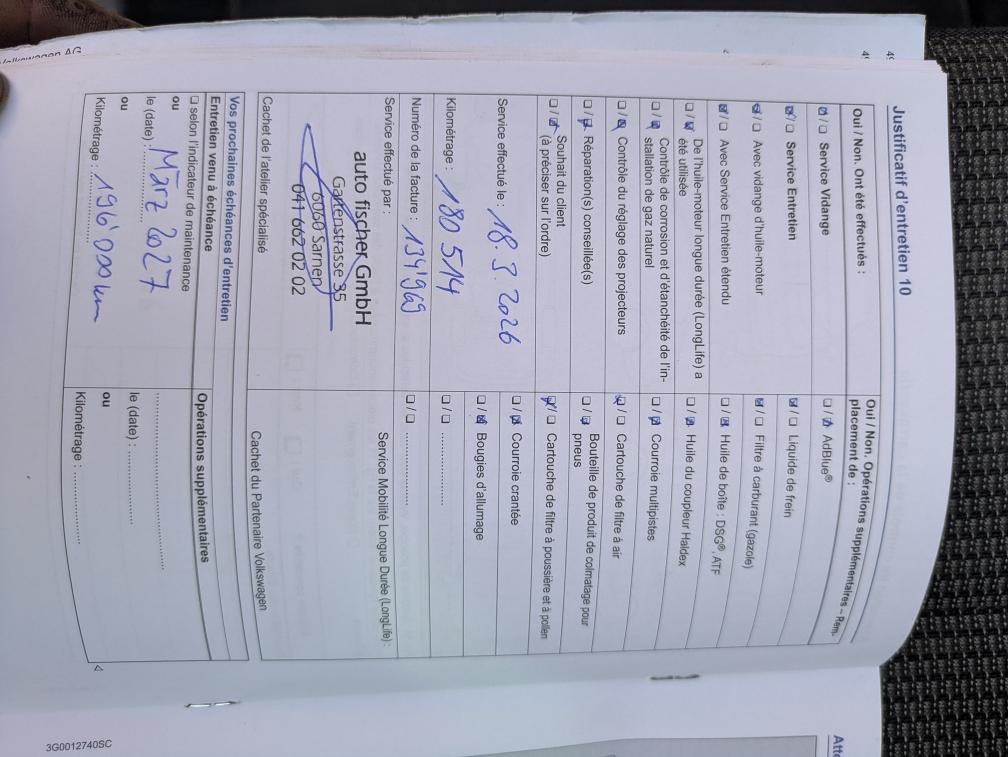 Volkswagen AG
Justificatif d'entretien 10
Oui / Non. Ont été effectués :
☑/☐ Service Vidange
☑/☐ Service Entretien
☑/☐ Avec vidange d'huile-moteur
☑/☐ Avec Service Entretien étendu
☐/☑ De l'huile-moteur longue durée (LongLife) a
été utilisée
☐/☑ Contrôle de corrosion et d'étanchéité de l'in-
stallation de gaz naturel
☐/☑ Contrôle du réglage des projecteurs
☐/☑ Réparation(s) conseillée(s)
☐/☑ Souhait du client
(à préciser sur l'ordre)
Service effectué le : 18.3.2026
Kilométrage : 180 514
Numéro de la facture : 134'969
Service effectué par :
auto fischer GmbH
Gartenstrasse 35
6060 Sarnen
041 662 02 02
Cachet de l'atelier spécialisé
Oui / Non. Opérations supplémentaires – Rem-
placement de :
☐/☑ AdBlue®
☑/☐ Liquide de frein
☑/☐ Filtre à carburant (gazole)
☐/☑ Huile de boîte : DSG®, ATF
☐/☑ Huile du coupleur Haldex
☐/☑ Courroie multipistes
☑/☐ Cartouche de filtre à air
☐/☑ Bouteille de produit de colmatage pour
pneus
☑/☐ Cartouche de filtre à poussière et à pollen
☐/☑ Courroie crantée
☐/☑ Bougies d'allumage
☐/☐ ..............
☐/☐ ..............
Service Mobilité Longue Durée (LongLife) :
Cachet du Partenaire Volkswagen
Vos prochaines échéances d'entretien
Entretien venu à échéance
☐ selon l'indicateur de maintenance
ou
le (date) : März 2027
ou
Kilométrage : 196'000 km
Opérations supplémentaires
..............................
le (date) : ..............
ou
Kilométrage : ..............
3G0012740SC